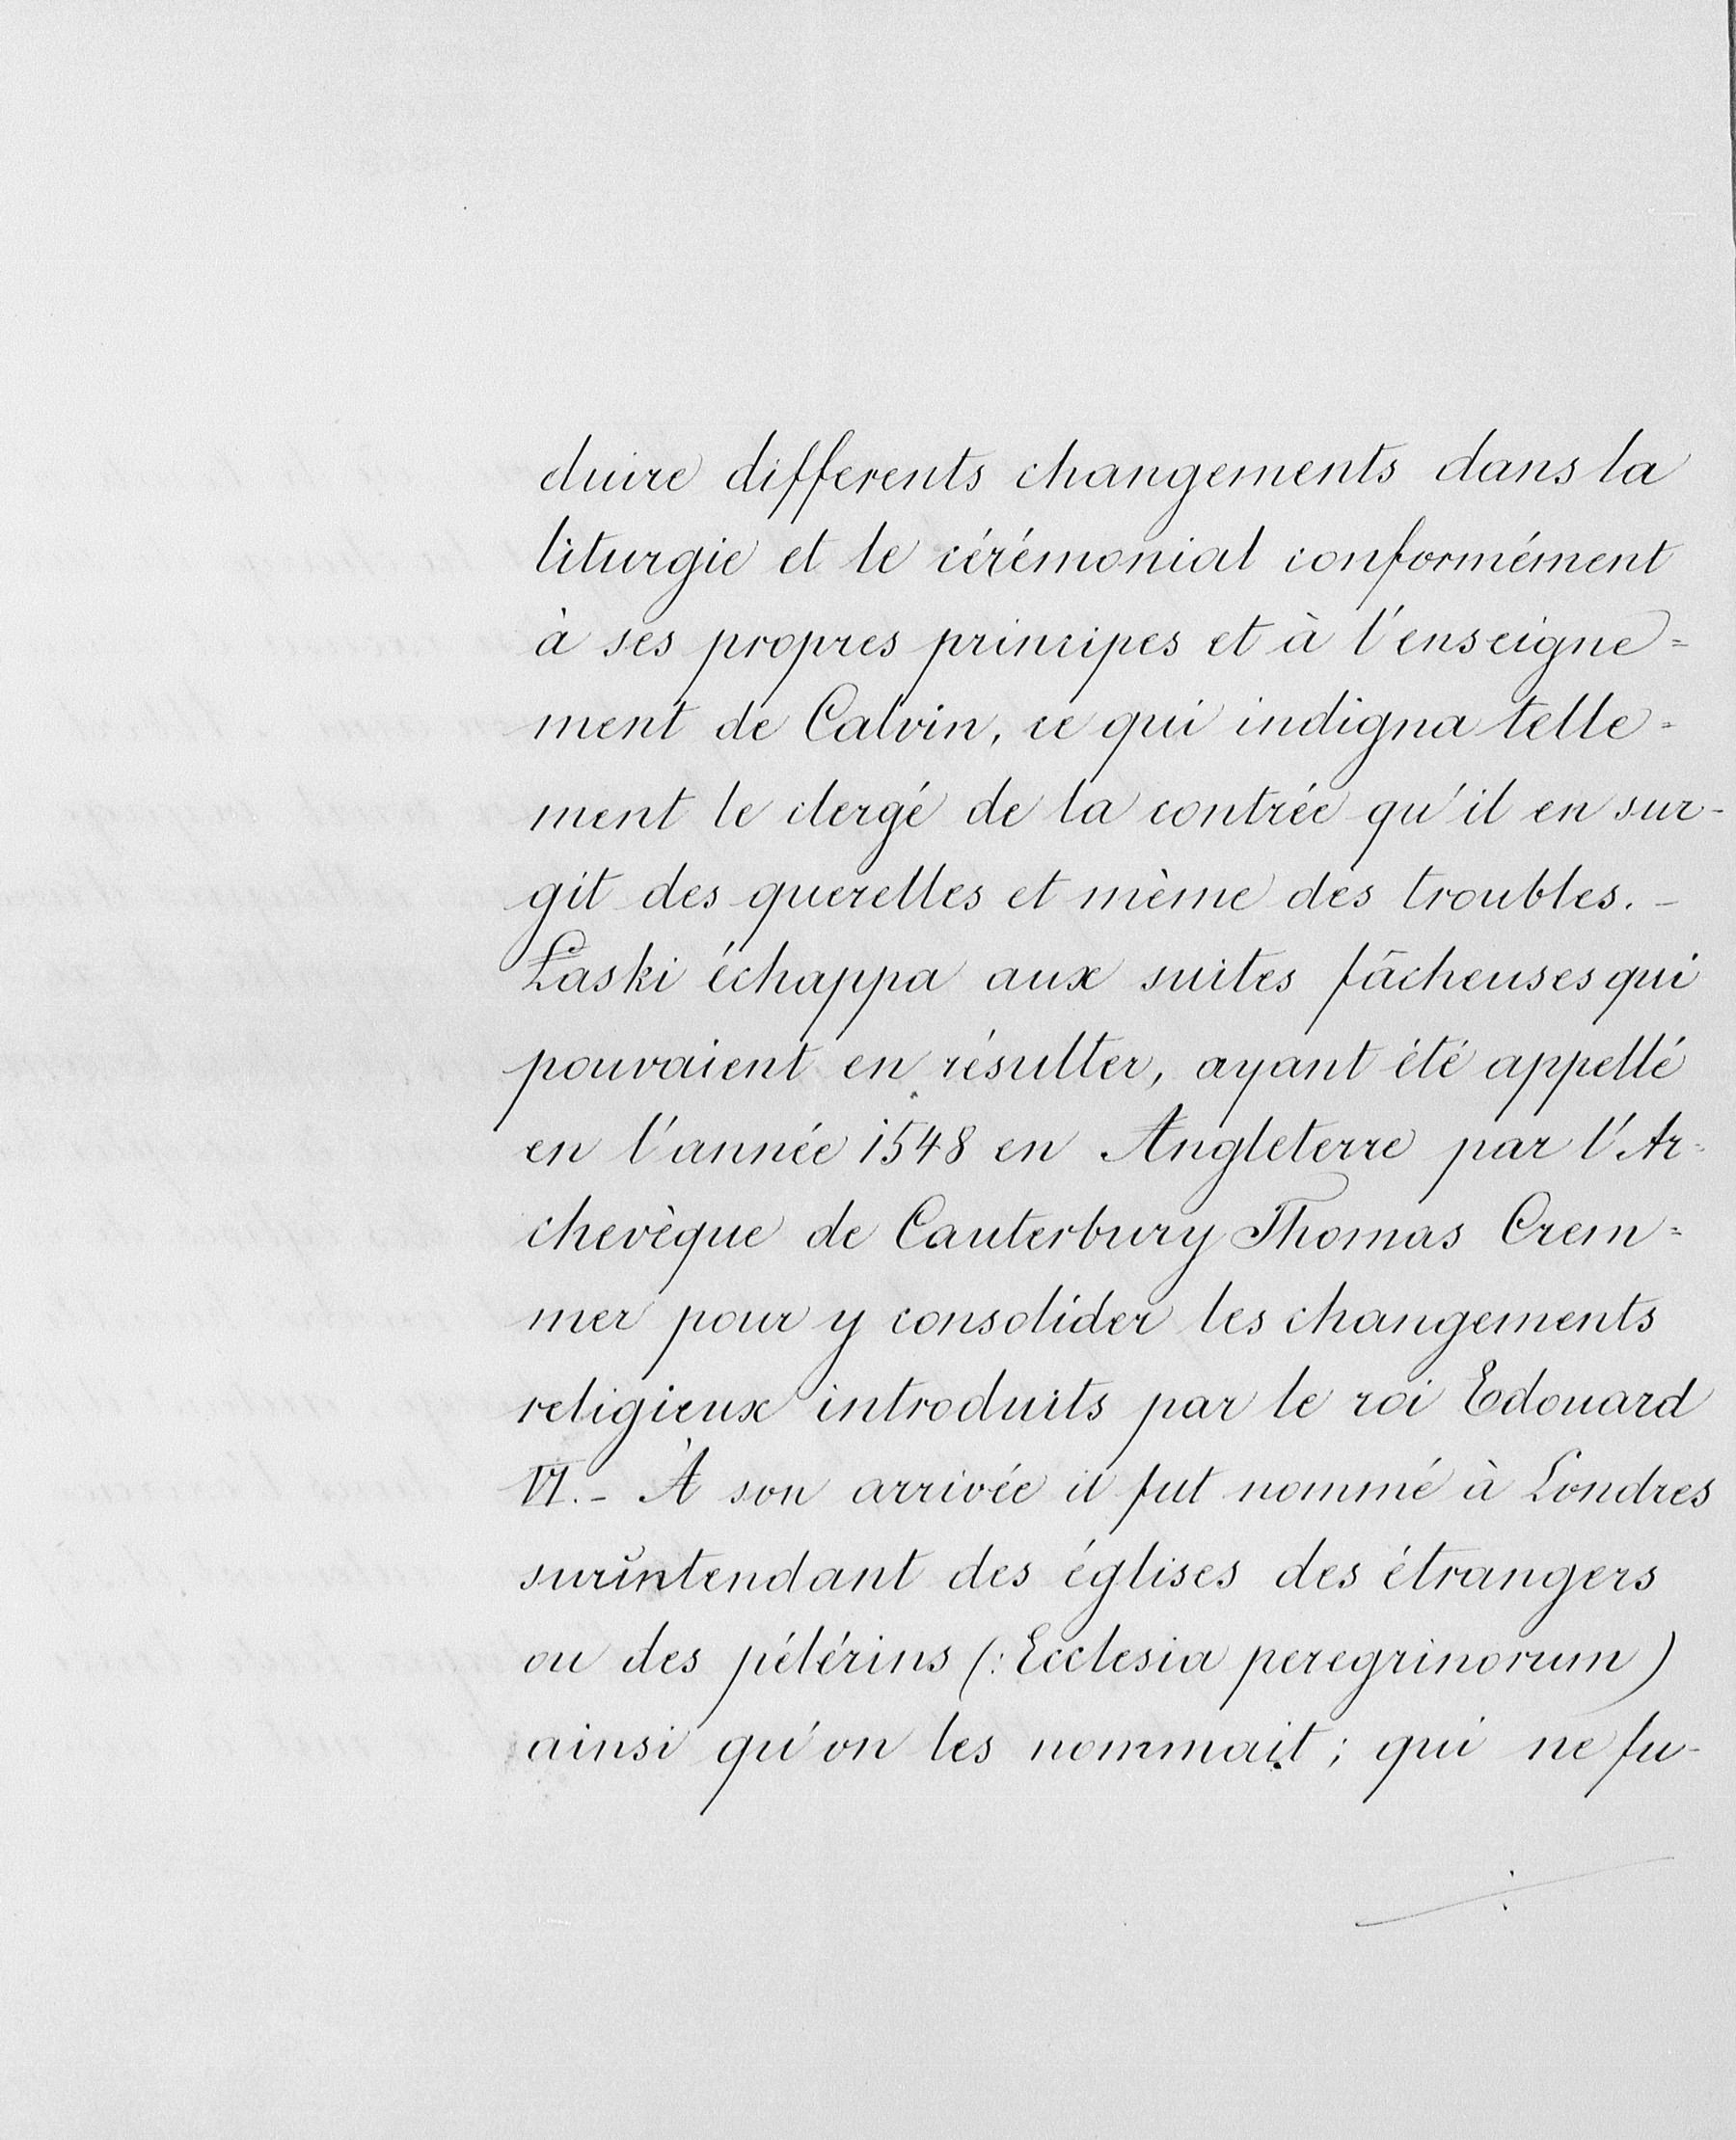 duire differents changements dans la
liturgie et le cérémonial conformément
à ses propres principes et à l'enseigne=
ment de Calvin, ce qui indigna telle=
ment le clergé de la contrée qu'il en sur-
git des querelles et mème des troubles. -
Łaski échappa aux suites fâcheuses qui
pouvaient en résulter, ayant été appellé
en l'année 1548 en Angleterre par l'Ar=
chevèque de Canterbury Thomas Crem=
mer pour y consolider les changements
religieux introduits par le roi Edouard
VI. - À son arrivée il fut nommé à Londres
surintendant des églises des étrangers
ou des pélérins (: Ecclesia peregrinorum)
ainsi qu'on les nommait; qui ne fu-